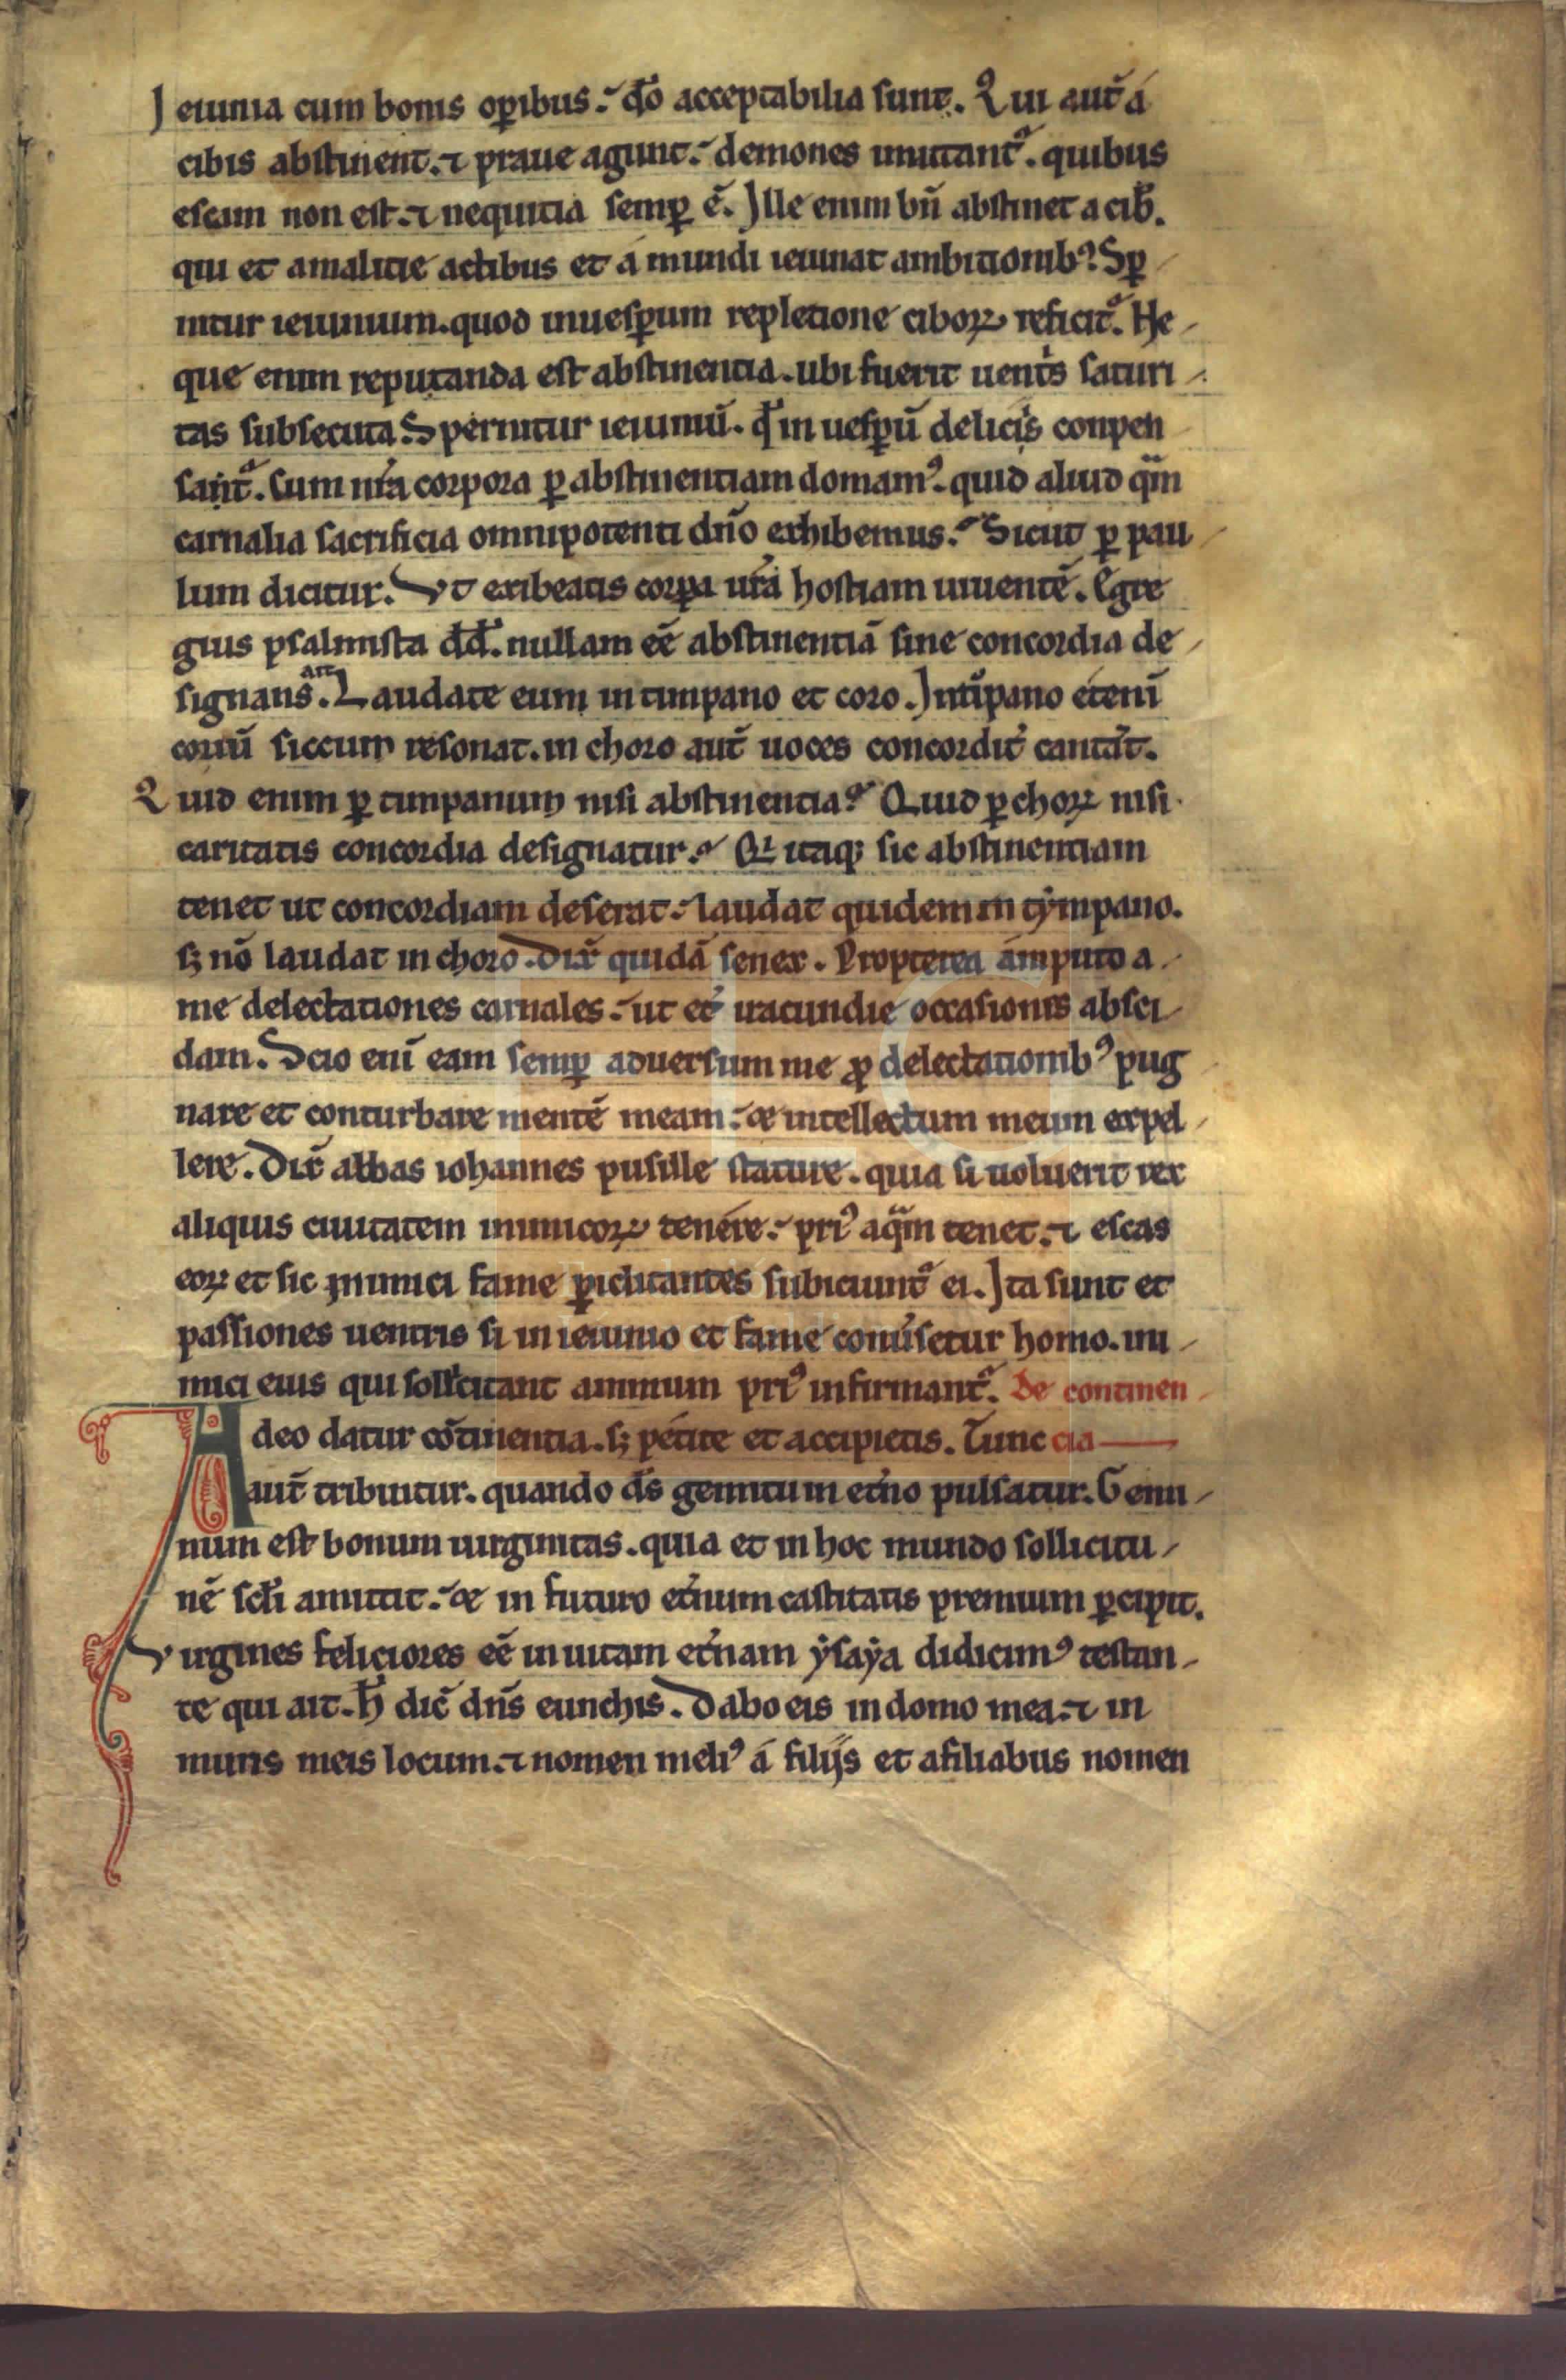 Ieiunia cum bonis op̲ibus. dō acceptabilia sunt. Qui aut̄ á
cibis abstinent. ⁊ praue agunt. demones imitant᷑. quibus
escam non est. ⁊ nequitia semp̲ ē. Ille enim bn̄ abstinet a cib̄.
qui et a malitie actibus et á mundi ieiunat ambitionib⁹. Sp̲
nitur ieiunium. quod in uesp̲um repletione ciboꝝ reficit᷑. Ne
que enim reputanda est abstinentia. ubi fuerit uent̾s saturi
tas subsecuta. Spernitur ieiuniū. qđ in uesp̲ū deliciis conpen
sant᷑. Cum nr̄a corpora p̲ abstinentiam domam⁹. quid aliud qᷓm
carnalia sacrificia omnipotenti dn̄o exhibemus. Sicut p̲ pau
lum dicitur. Vt exibeatis corpa ur̄a hostiam uiuentē. Egre
gius psalmista dd̄. nullam eē abstinentiā sine concordia de
signans. ait Laudate eum in timpano et coro. In tīpano etenī
coriū siccum resonat. in choro aut̄ uoces concordit̾ cantāt.
Quid enim p̲ timpanum nisi abstinentia. Quid p̲ choꝝ nisi
caritatis concordia designatur. Qi itaq; sic abstinentiam
tenet ut concordiam deserat. laudat quidem in tẏmpano.
sꝫ nō laudat in choro. Dix̄ quidā senex. Propterea ámputo a
me delectationes carnales. ut et̾ iracundie occasiones absci
dam. Scio enī eam semp̲ aduersum me ꝓ delectationib⁹ pug
nare et conturbare mentē meam. & intellectum meum expel
lere. Dix̄ abbas iohannes pusille stature. quia si uoluerit rex
aliquis ciuitatem inimicoꝝ tenére. pri⁹ aqᷓm tenet. ⁊ escas
eoꝝ et sic inimici fame p̲iclitantes subiciunt᷑ ei. Ita sunt et
passiones uentris si in ieiunio et fame conu̾setur homo. ini
mici eius qui sollicitant animum pri⁹ infirmant᷑. De continen
A deo datur cōtinentia. sꝫ petite et accipietis. Tunc cia
aut̄ tribuitur. quando ds̄ gemitu in et̾no pulsatur. Gemi
num est bonum uirginitas. quia et in hoc mundo sollicitu
nē scl̄i amittit. & in futuro et̾num castitatis premium p̲cipit.
Virgines feliciores eē in uitam et̾nam ẏsaẏa didicim⁹ testan
te qui ait. H̄ dic̄ dn̄s eunchis. Dabo eis in domo mea. ⁊ in
muris meis locum. ⁊ nomen meli⁹ á filijs et a filiabus nomen